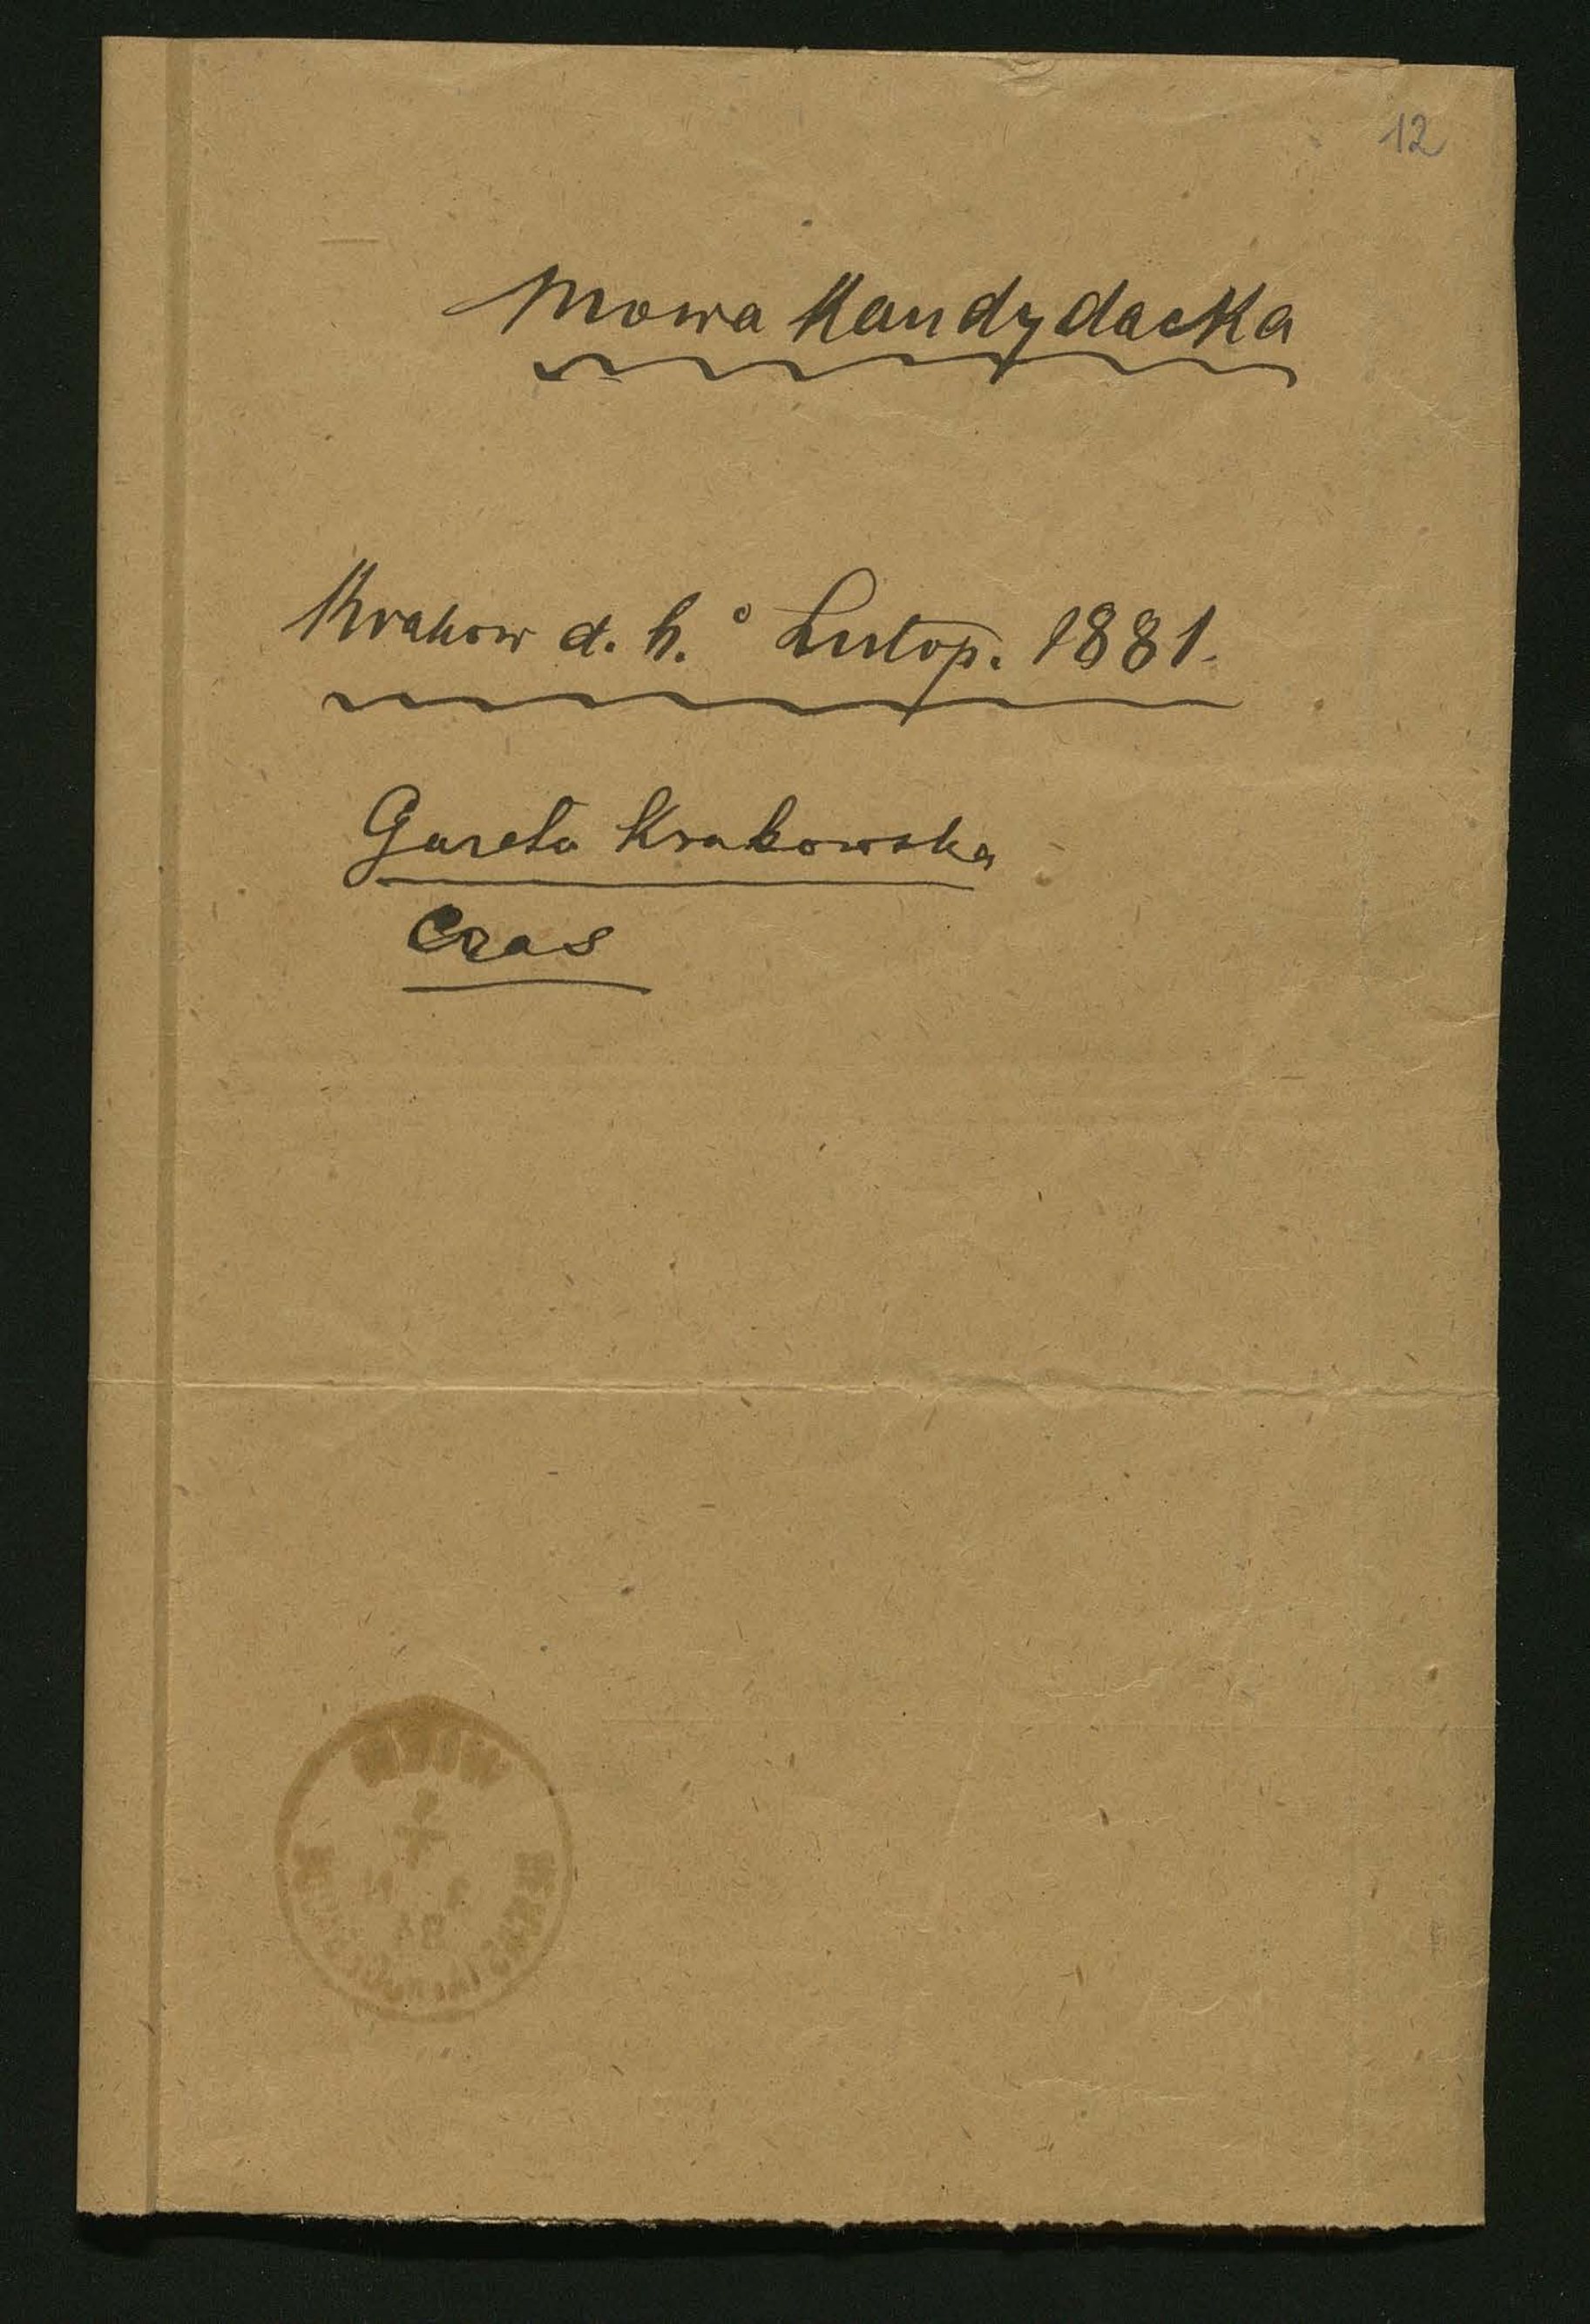 12
Mowa Kandydacka
Krakow d. 4.º Listop. 1881.
Gazeta Krakowska
Czas
WIEN